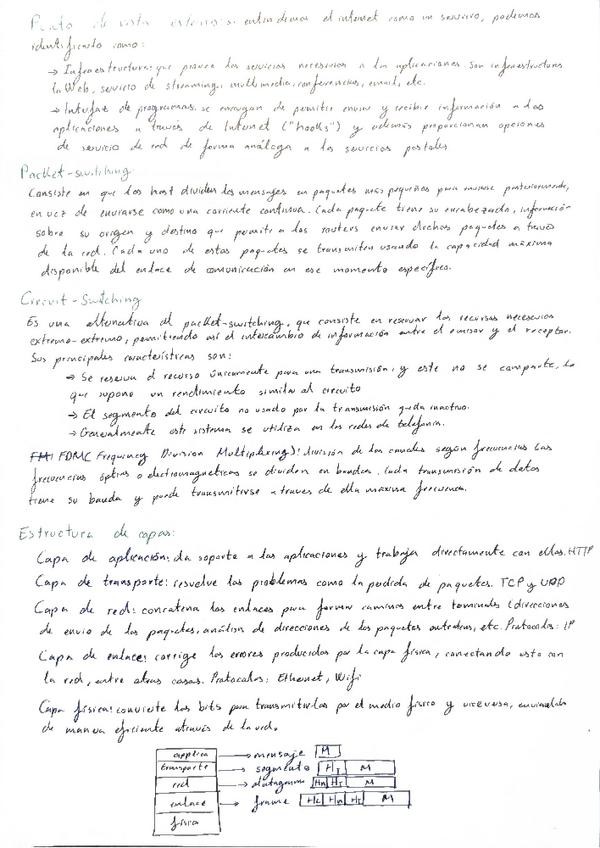 Punto de vista externo: si entendemos el internet como un servicio, podemos
identificarlo como:
→ Infraestructura: que provee los servicios necesarios a las aplicaciones. Son infraestructura
la Web, servicio de streaming, multimedia, conferencias, email, etc.
→ Interfaz de programas: se encargan de permitir enviar y recibir información a las
aplicaciones a través de Internet ("hooks") y además proporcionan opciones
de servicio de red de forma análoga a los servicios postales
Packet-switching
Consiste en que los host dividen los mensajes en paquetes más pequeños para enviarse posteriormente,
en vez de enviarse como una corriente continua. Cada paquete tiene su encabezado, información
sobre su origen y destino que permite a los routers enviar dichos paquetes a través
de la red. Cada uno de estos paquetes se transmiten usando la capacidad máxima
disponible del enlace de comunicación en ese momento específico.
Circuit-Switching
Es una alternativa al packet-switching, que consiste en reservar los recursos necesarios
extremo-extremo, permitiendo así el intercambio de información entre el emisor y el receptor.
Sus principales características son:
→ Se reserva el recurso únicamente para una transmisión, y este no se comparte, lo
que supone un rendimiento similar al circuito
→ El segmento del circuito no usado por la transmisión queda inactivo.
→ Generalmente este sistema se utiliza en las redes de telefonía.
FDM (Frequency Division Multiplexing): división de los canales según frecuencias. Las
frecuencias ópticas o electromagnéticas se dividen en bandas. Cada transmisión de datos
tiene su banda y puede transmitirse a traves de ella maxima frecuencia.
Estructura de capas:
Capa de aplicación: da soporte a las aplicaciones y trabaja directamente con ellas. HTTP
Capa de transporte: resuelve los problemas como la perdida de paquetes. TCP y UDP
Capa de red: concatena los enlaces para formar caminos entre terminales (direcciones
de envio de los paquetes, análisis de direcciones de los paquetes entrantes, etc. Protocolos: IP
Capa de enlace: corrige los errores producidos por la capa física, conectando esta con
la red, entre otras cosas. Protocolos: Ethernet, Wifi
Capa física: convierte los bits para transmitirlos por el medio físico y viceversa, enviandolos
de manera eficiente através de la red.
applica → mensaje M
transporte → segmento Ht M
red → datagrama Hn Ht M
enlace → frame Hl Hn Ht M
física